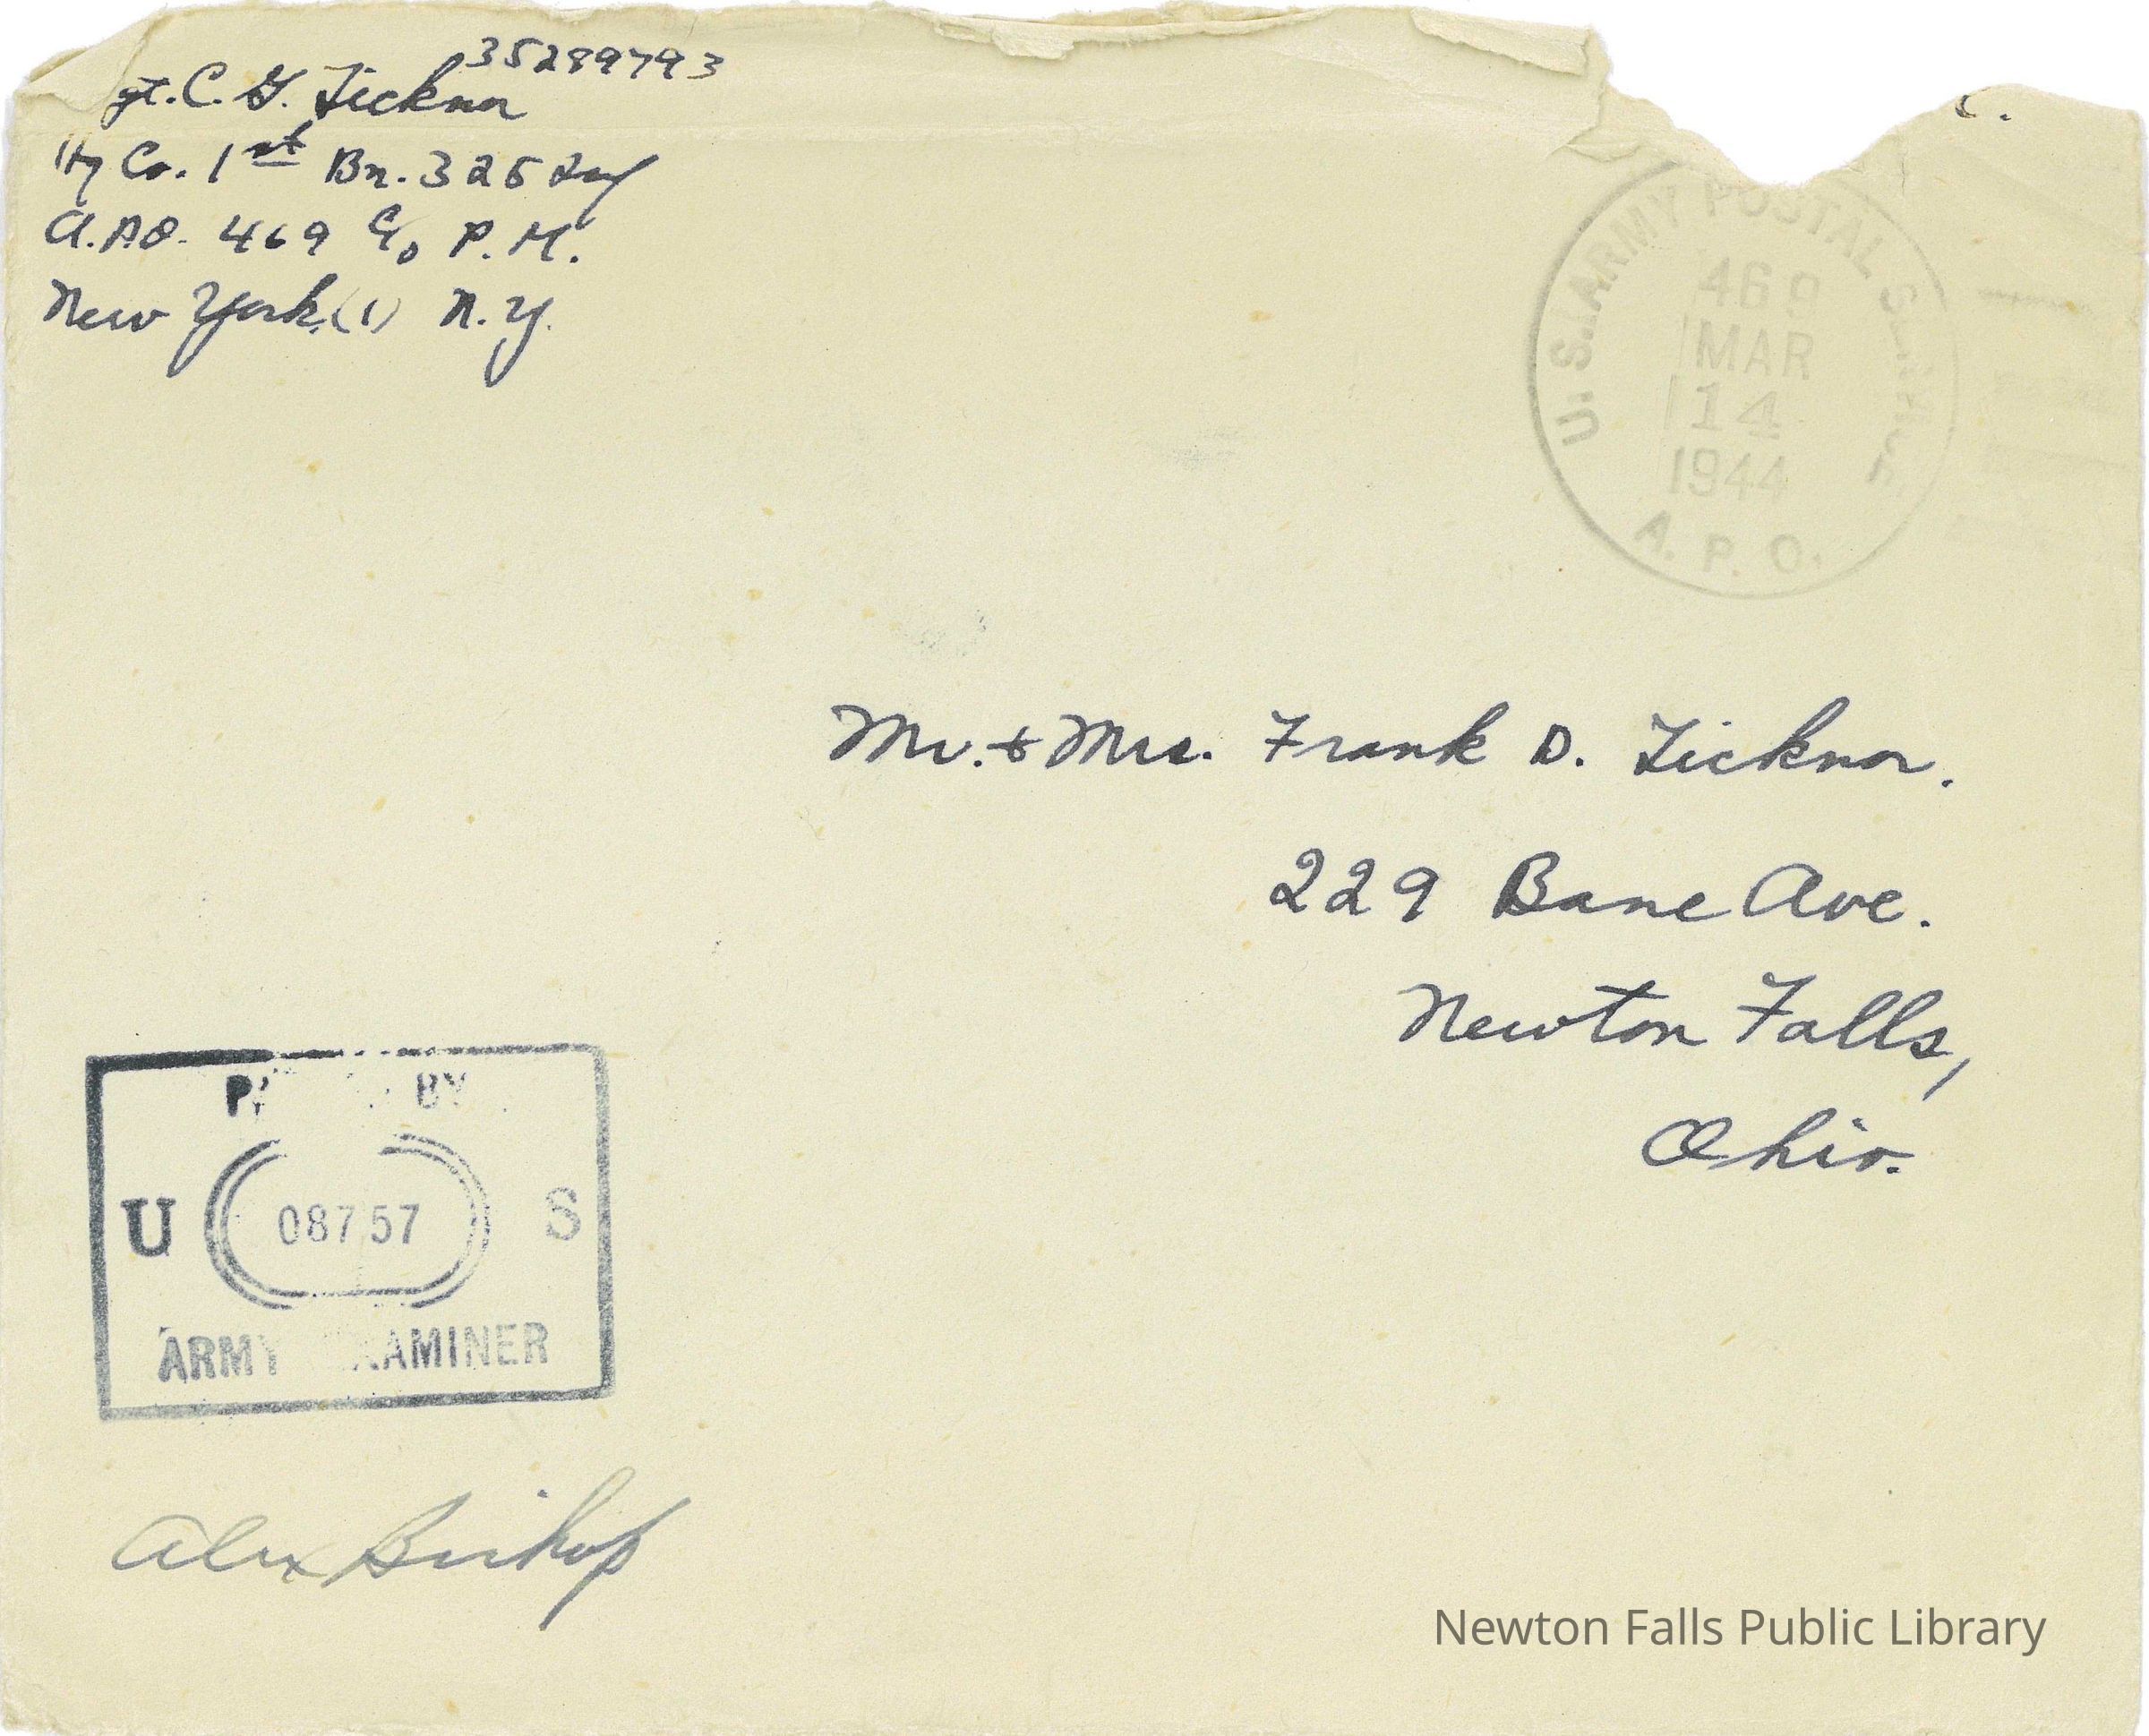 35289793
gt. C. G. Ticknor
Hq Co. 1st Bn. 325 Inf
A.P.O. 469 c/o P.M.
New York, (1) N.Y.
c.
U.S. ARMY POSTAL SERVICE
469
MAR
14
1944
A. P. O.
Mr. + Mrs. Frank D. Ticknor.
229 Bane Ave.
Newton Falls,
Ohio.
P BY
U 08757 S
ARMY EXAMINER
Alex Bishop
Newton Falls Public Library